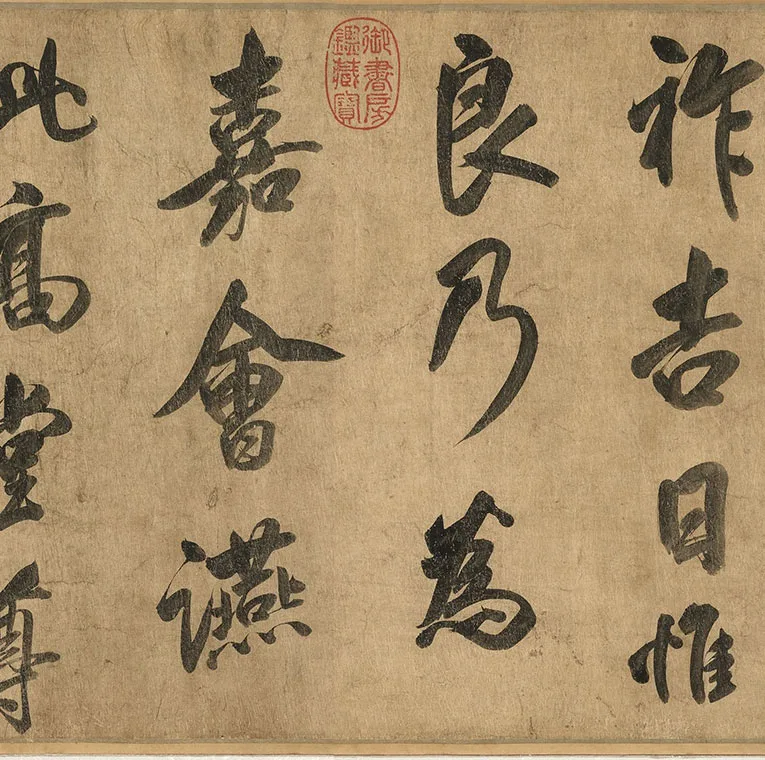 祚吉日惟
良乃為
御書房
鑑藏寶
嘉會讌
此高堂尊